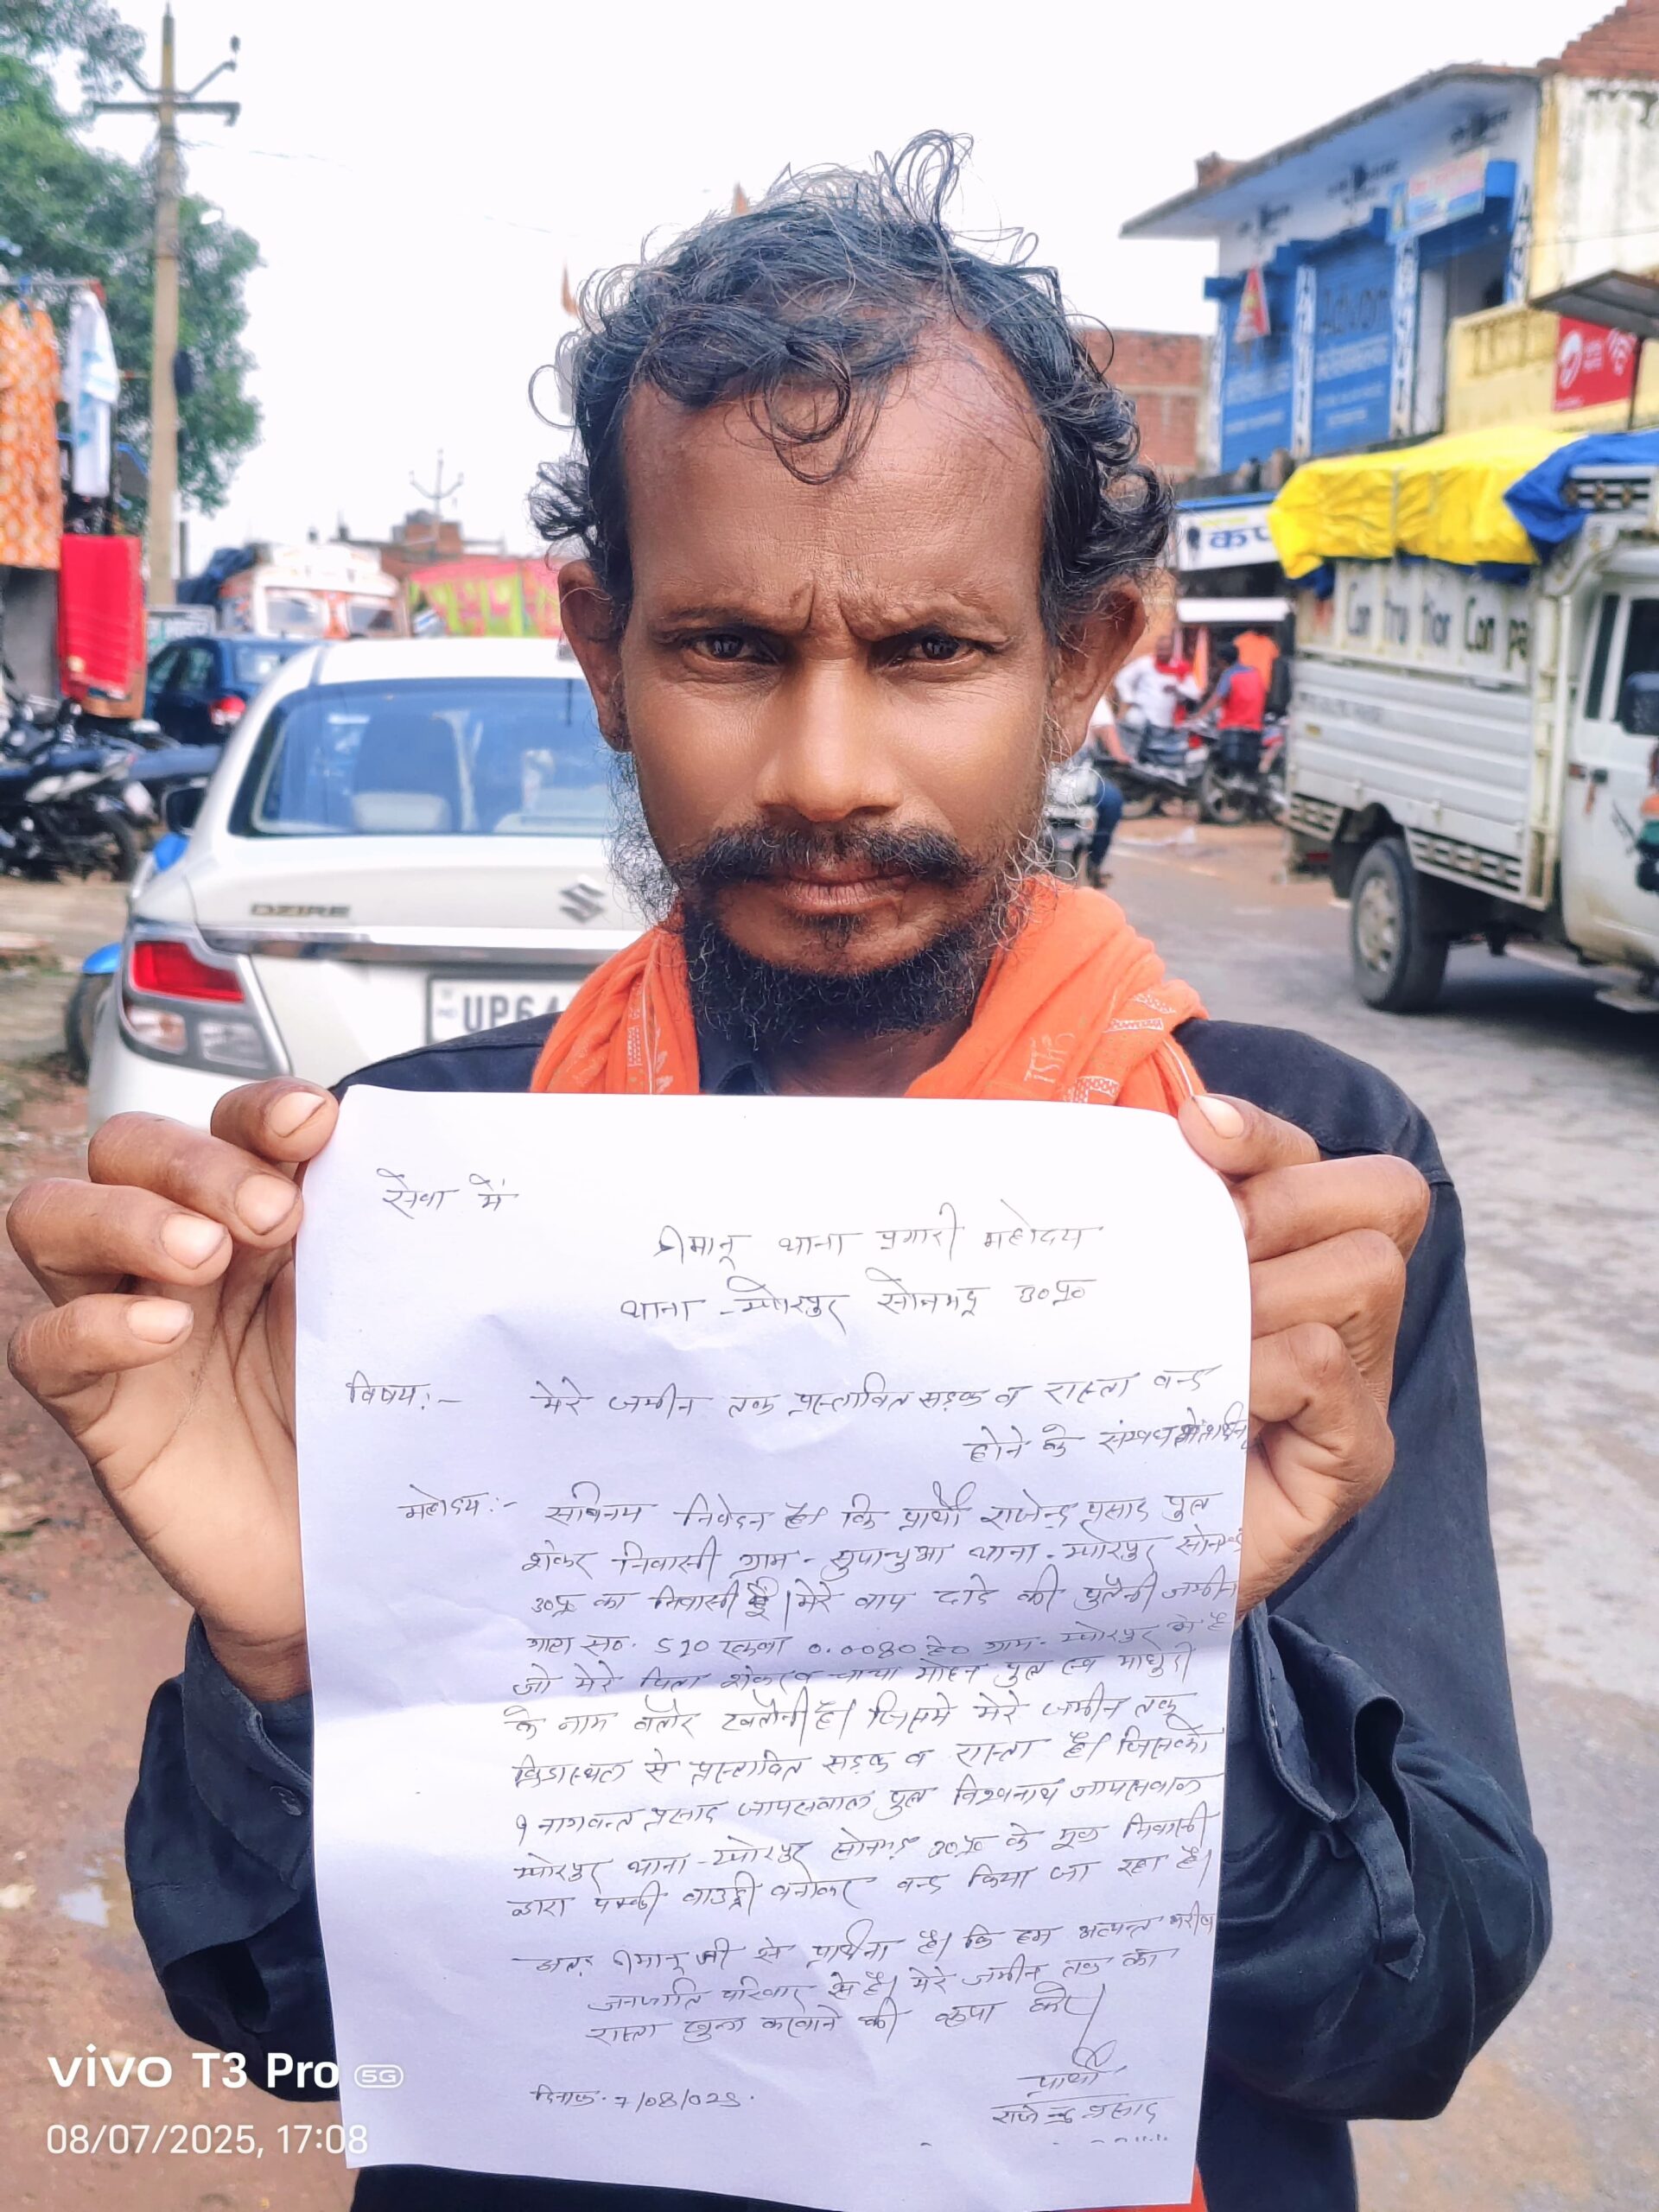 सेवा में
श्रीमान् थाना प्रभारी महोदय
थाना - म्योरपुर सोनभद्र उ०प्र०
विषय:- मेरे जमीन तक प्रस्तावित सड़क व रास्ता बन्द
होने के संम्बध में
महोदय:- सविनय निवेदन है। कि प्रार्थी राजेन्द्र प्रसाद पुत्र
शंकर निवासी ग्राम - थाना - म्योरपुर
उ०प्र० का निवासी हूँ। मेरे बाप दादे की पुतैनी जमीन
गाटा स०. 510 रकबा 0.0080 हे० ग्राम - म्योरपुर में है
जो मेरे पिता शंकर व चाचा मोहन पुत्र स्व
के नाम बतौर खतौनी है। जिसमे मेरे जमीन तक
से प्रस्तावित सड़क व रास्ता है। जिसको
प्रसाद जायसवाल पुत्र विश्वनाथ जायसवाल
म्योरपुर थाना - म्योरपुर सोनभद्र उ०प्र० के मूल निवासी
द्वारा पक्की बनाकर बन्द किया जा रहा है।
अतः श्रीमान् जी से प्रार्थना है। कि हम अत्यन्त गरीब
जनजाति परिवार से है। मेरे जमीन तक का
रास्ता खुला करवाने की कृपा करें।
प्रार्थी
राजेन्द्र प्रसाद
दिनांक: 7/08/025.
DZIRE
UP64
Airtel
vivo T3 Pro 5G
08/07/2025, 17:08